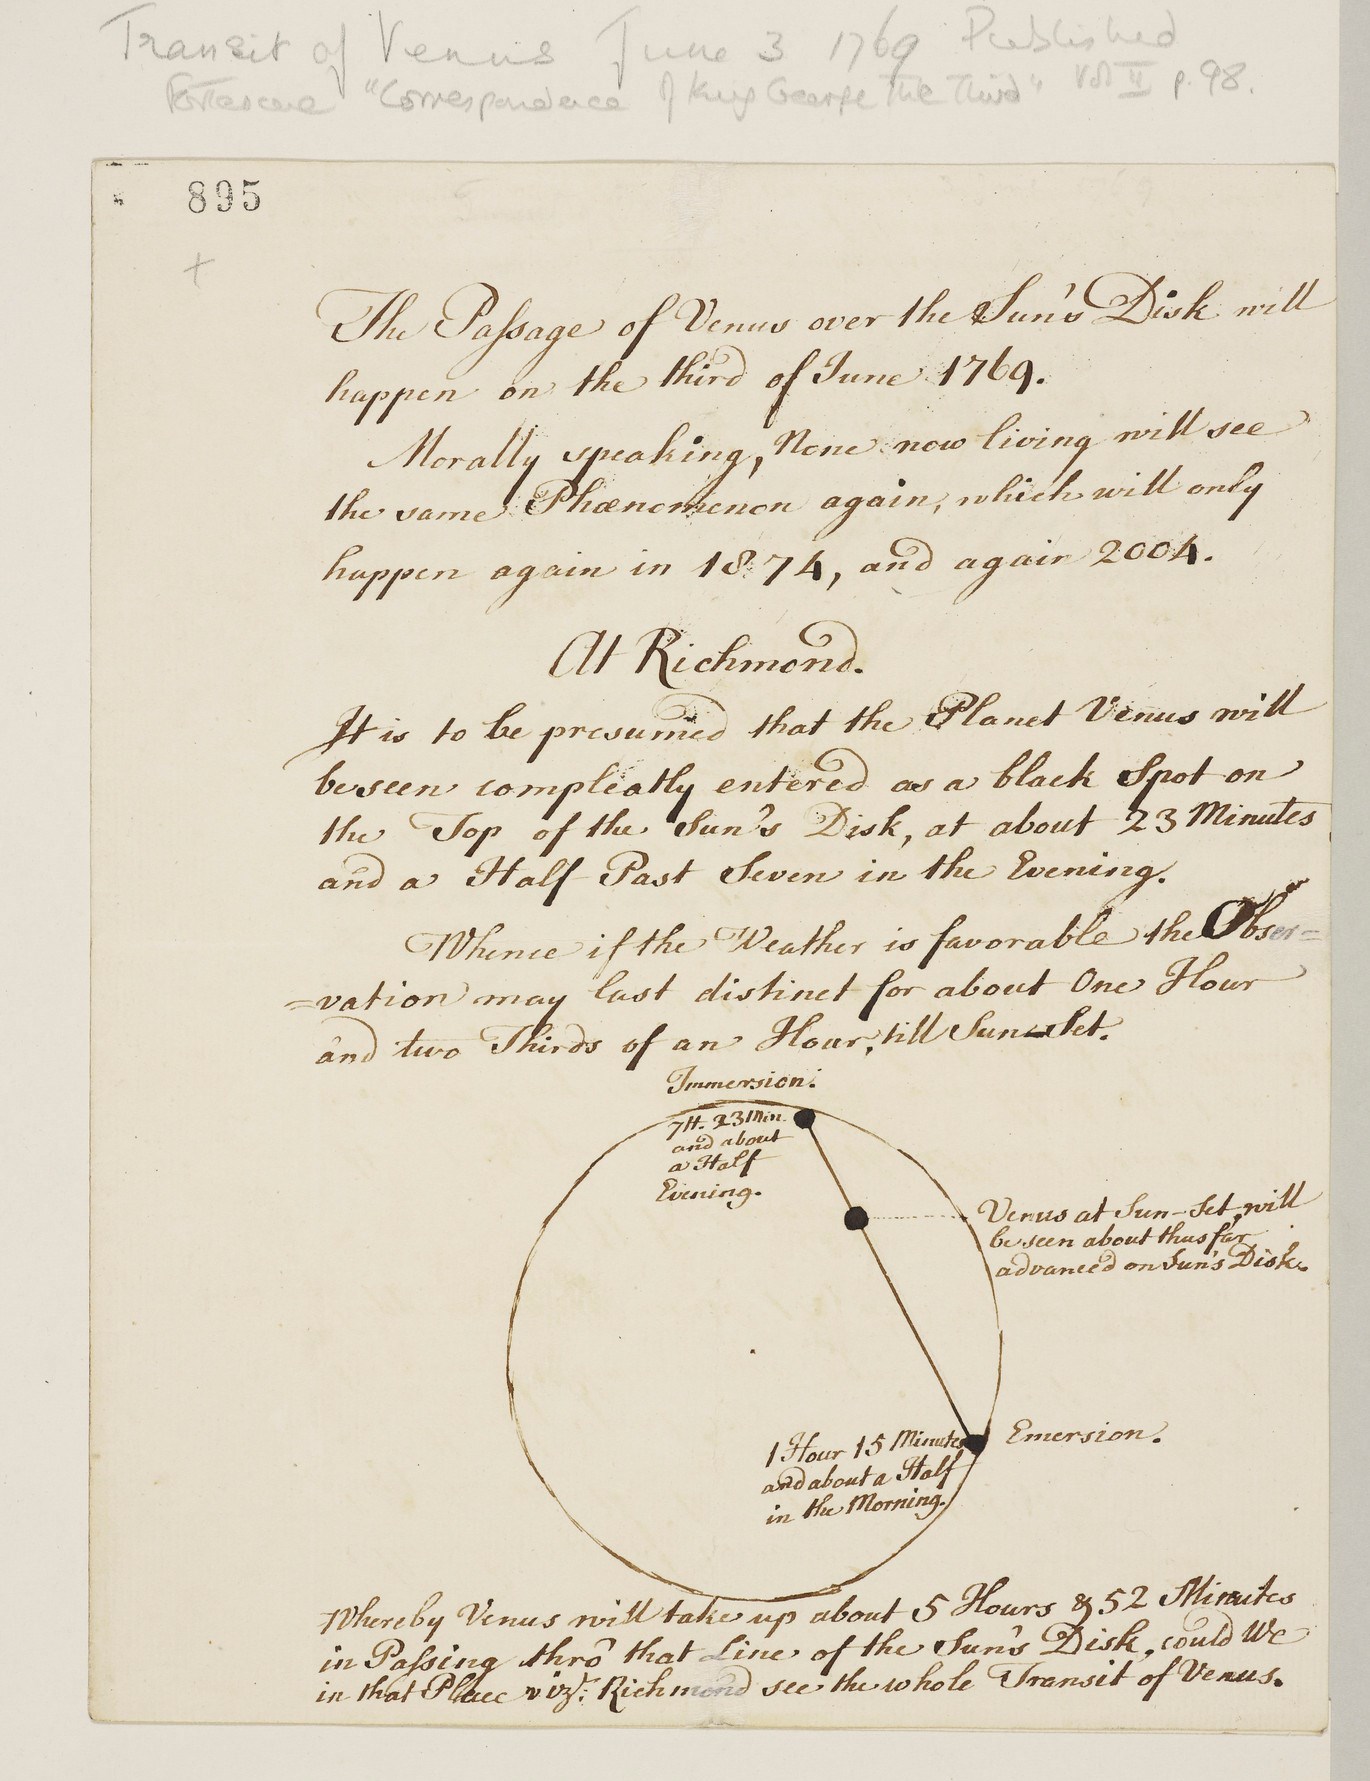 Transit of Venus June 3 1769 Published
Fortescue "Correspondence of King George The Third" Vol II p. 98.
895
+
The Paſsage of Venus over the Sun's Disk will
happen on the third of June 1769.
Morally speaking, None now living will see
the same Phænomenon again, which will only
happen again in 1874, and again 2004.
At Richmond.
It is to be presumed that the Planet Venus will
be seen compleatly entered as a black Spot on
the Top of the Sun's Disk, at about 23 Minutes
and a Half Past Seven in the Evening.
Whence if the Weather is favorable the Obser=
=vation may last distinct for about One Hour
and two Thirds of an Hour, till Sun-Set.
Immersion.
7H. 23 Min.
and about
a Half
Evening.
Venus at Sun-Set, will
be seen about thus far
advanced on Sun's Disk.
Emersion.
1 Hour 15 Minutes
and about a Half
in the Morning.
Whereby Venus will take up about 5 Hours & 52 Minutes
in Paſsing thro' that Line of the Sun's Disk, could We
in that Place viz.t Richmond see the whole Transit of Venus.